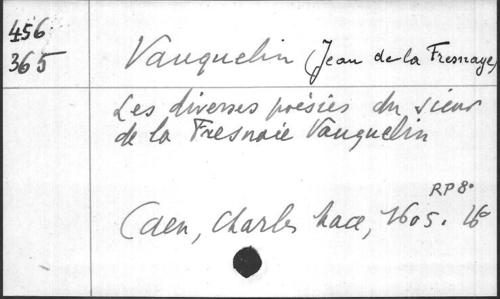 456
365
Vauquelin (Jean de la Fresnaye)
Les diverses poésies du sieur
de la Fresnaie Vauquelin
RP 8°
Caen, Charles Macé, 1605. 16°